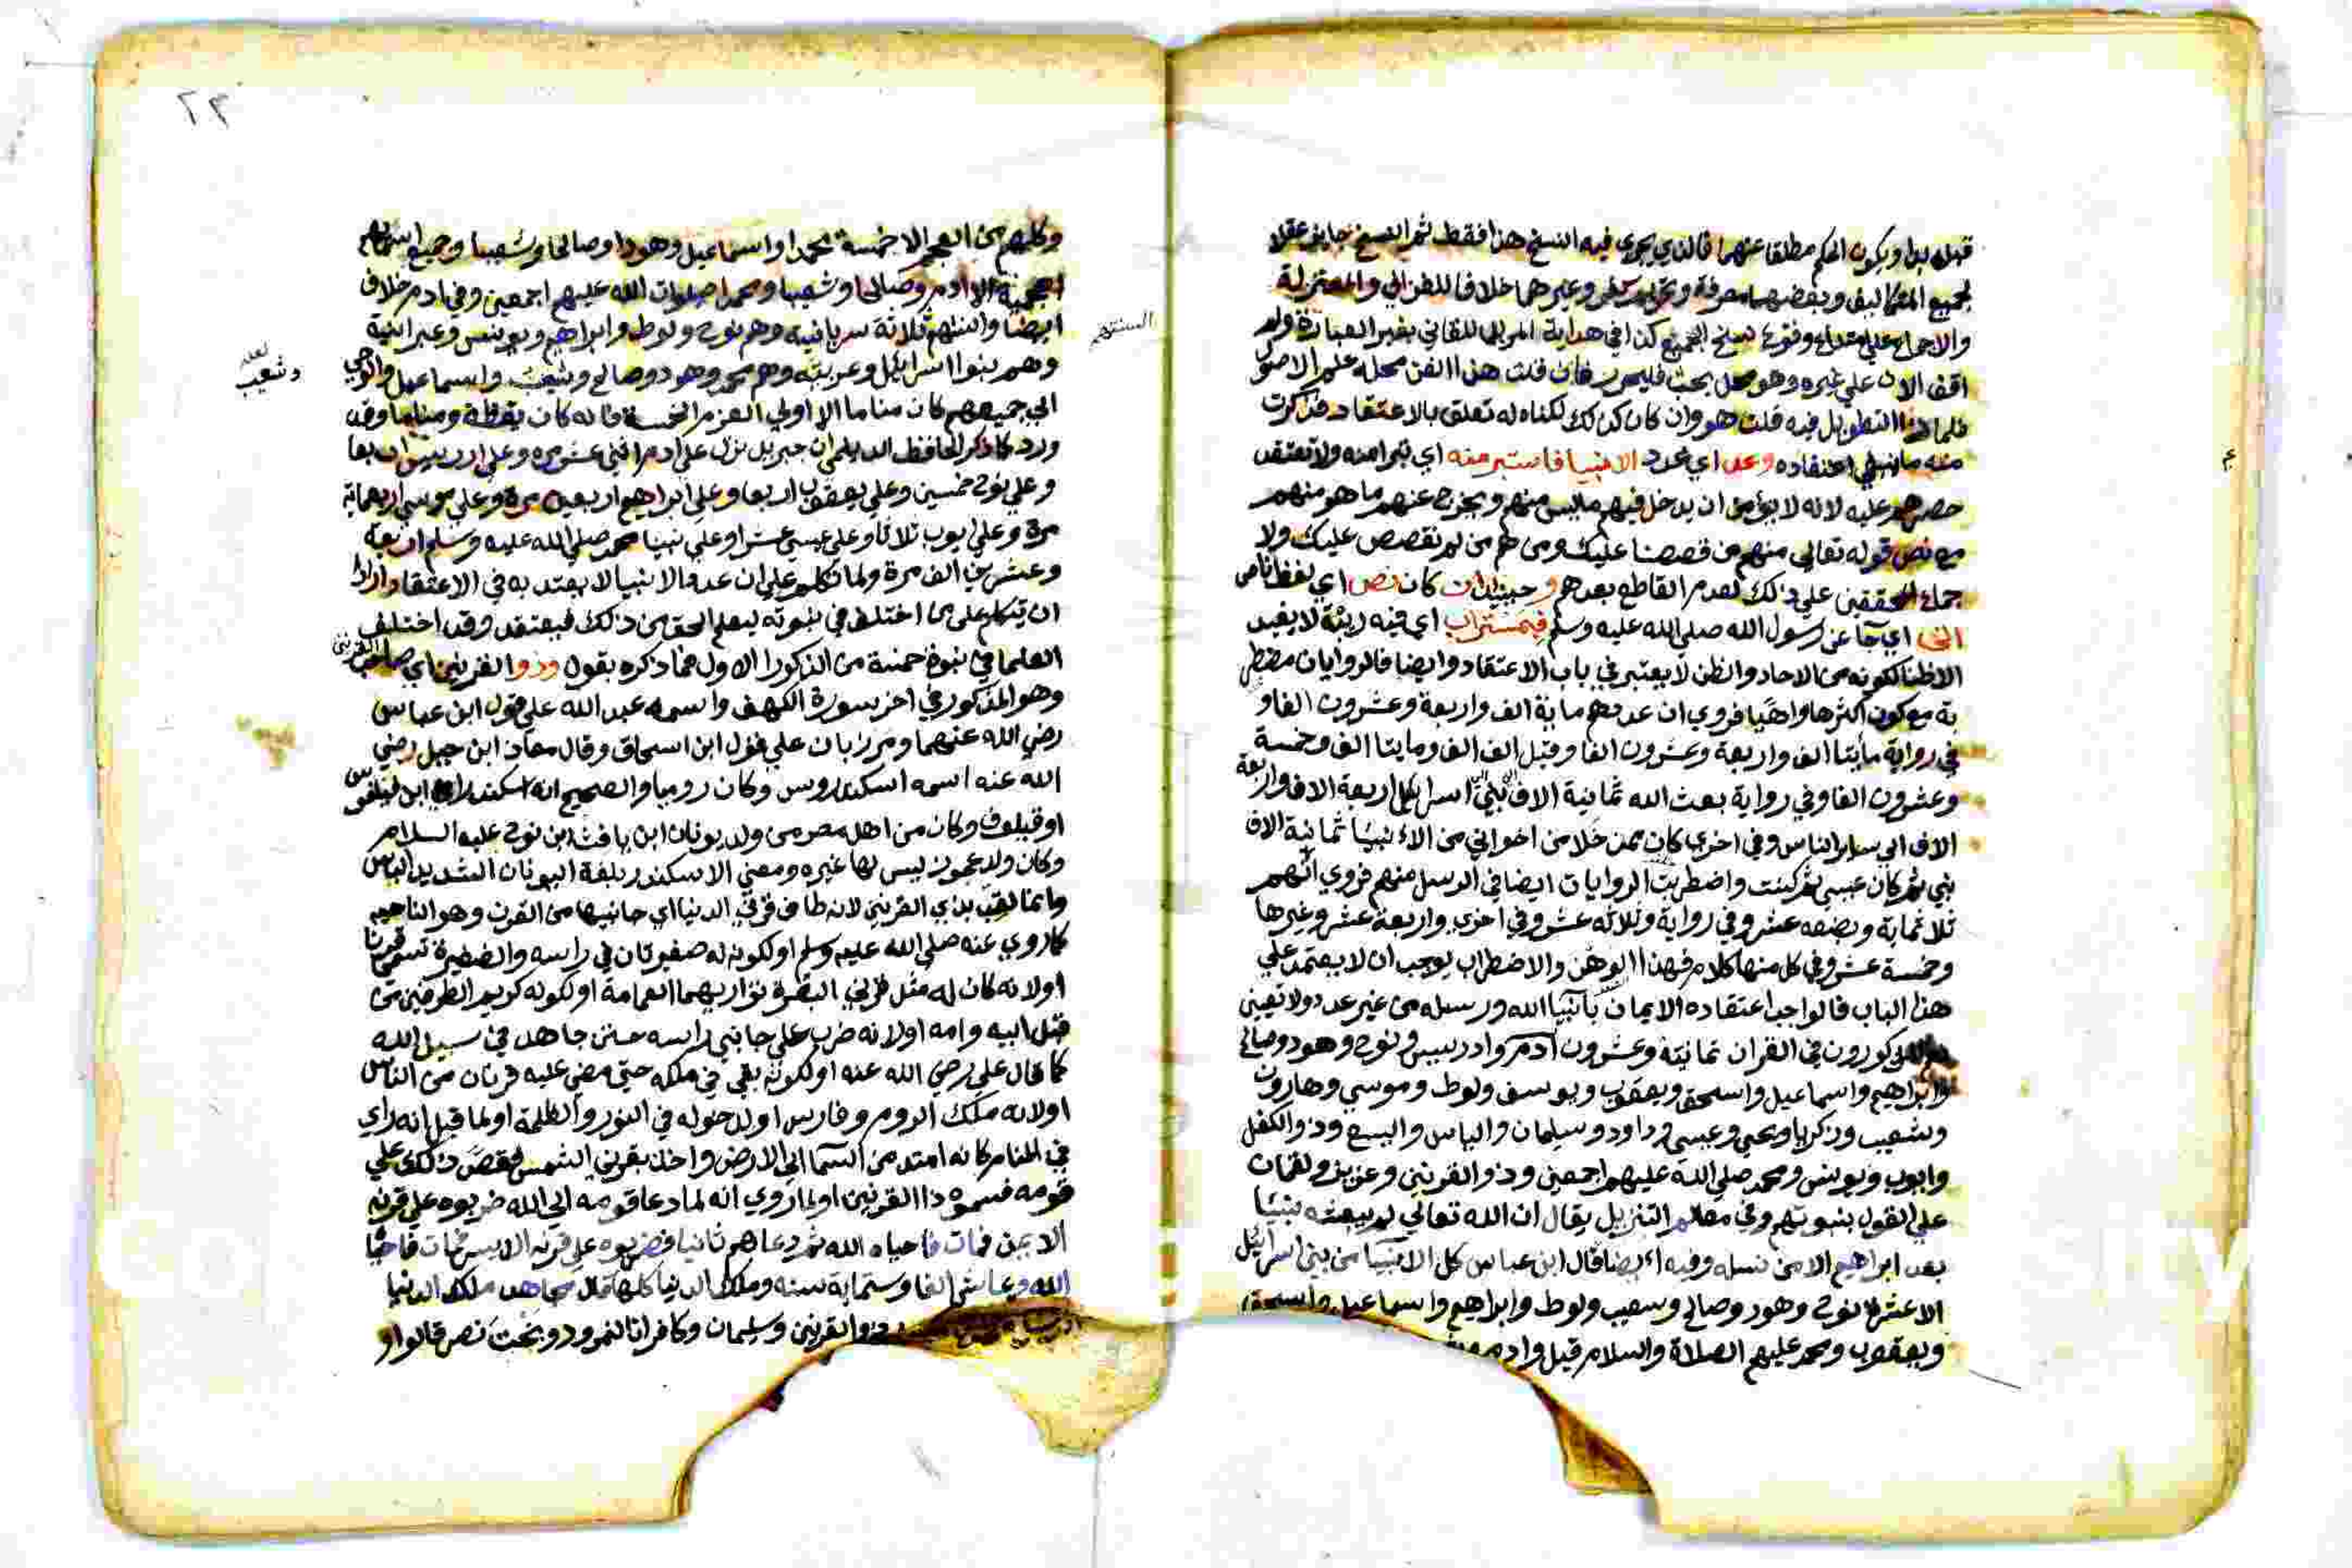 قبله بدا ويكون الحكم مطلقا عنهما فالذي يجري فيه النسخ هذا فقط ثم النسخ جايز عقلا
لجميع التكاليف وبعضهم معرفة وتحريم كفر وغيرهما خلافا للغزالي والمعتزلة
والاجماع علي عدم وقوع نسخ الجميع كذا في هداية المريد للقاني بغير العبارة ولم
اقف الان علي غيره وهو محل بحث فليحرر فان قلت هذا الفن محله علم الاصول
فلماذا التطويل فيه قلت هو وان كان كذلك لكنه له تعلق بالاعتقاد فذكرت
منه ما ينبغي اعتقاده وعد اي عدد الانبيا فاستبر منه اي تبرا منه ولا تعتقد
حصرهم عليه لانه لا يؤمن ان يدخل فيهم ما ليس منهم ويخرج عنهم ما هو منهم
مع نص قوله تعالي منهم من قصصنا عليك ومنهم من لم نقصص عليك ولا
جماع المحققين علي ذلك لعدم القاطع بعدهم وحينئذ ان كان نص اي لفظ ناص
اتي اي جا عن رسول الله صلي الله عليه وسلم فيه مستراب اي فيه ريبة لا يفيد
الا ظنا لكونه من الاحاد والظن لا يعتبر في باب الاعتقاد وايضا فالروايات مضطر
بة مع كون اكثرها واهيا فروي ان عددهم ماية الف واربعة وعشرون الفا و
في رواية مايتا الف واربعة وعشرون الفا وقيل الف الف ومايتا الف وخمسة
وعشرون الفا وفي رواية بعث الله ثمانية الاف نبي اربعة الاف واربعة
الاف الي ساير الناس وفي اخري كان ممن خلا من اخواني من الانبيا ثمانية الاف
نبي ثم كان عيسي ثم كنت واضطربت الروايات ايضا في الرسل منهم فروي انهم
ثلاثماية وبضعه عشر وفي رواية وثلاثه عشر وفي اخري واربعة عشر وغيرها
وخمسة عشر وفي كل منها كلام فهذا الوهن والاضطراب يوجب ان لا يعتمد علي
هذا الباب فالواجب اعتقاده الايمان بانبيا الله ورسله من غير عدد ولا تعيين
والمذكورون في القران ثمانية وعشرون ادم وادريس ونوح وهود وصالح
وابراهيم واسماعيل واسحق ويعقوب ويوسف ولوط وموسي وهارون
وشعيب وزكريا ويحيي وعيسي وداود وسليمان والياس واليسع وذوالكفل
وايوب ويونس ومحمد صلي الله عليهم اجمعين وذو القرنين وعزيز ولقمان
علي القول بنبوتهم وفي معالم التنزيل يقال ان الله تعالي لم يبعث نبيا
بعد ابراهيم الا من نسله وفيه ايضا قال ابن عباس كل الانبيا من بني اسرائيل
الا عشرة نوح وهود وصالح وشعيب ولوط وابراهيم واسماعيل واسحق
ويعقوب ومحمد عليهم الصلاة والسلام قيل وادم
٢٣
وكلهم من العجم الا خمسة محمدا واسماعيل وهودا وصالحا وشعيبا وجميع اسمائهم
اعجمية الا ادم وصالحا وشعيبا ومحمدا صلوات الله عليهم اجمعين وفي ادم خلاف
ايضا والسنتهم ثلاثة سريانيه وهم نوح ولوط وابراهيم ويونس وعبرانية
وهم بنوا اسرائيل وعربيه وهم محمد وهود وصالح وشعيب واسماعيل والوحي
الي جميعهم كان مناما الا اولي العزم الخمسة فانه كان يقظة ومناما وقد
ورد كما ذكر الحافظ الديلمي ان جبريل نزل علي ادم اثني عشر مره وعلي ادريس اربعا
وعلي نوح خمسين وعلي يعقوب اربعا وعلي ابراهيم اربعين مرة وعلي موسي اربعماية
مرة وعلي ايوب ثلاثا وعلي عيسي عشرا وعلي نبينا محمد صلي الله عليه وسلم اربعة
وعشرين الف مرة ولما تكلم علي ان عدد الانبيا لا يعتد به في الاعتقاد اراد
ان يتكلم علي من اختلف في نبوته ليعلم الحق من ذلك فيعتقد وقد اختلف
العلما في نبوة خمسة من الذكور الاول مما ذكره بقول وذو القرنين اي صاحب القرنين
وهو المذكور في اخر سورة الكهف واسمه عبد الله علي قول ابن عباس
رضي الله عنهما ومرزبان علي قول ابن اسحاق وقال معاذ ابن جبل رضي
الله عنه اسمه اسكندروس وكان روميا والصحيح انه اسكندر ابن فيلفوس
او فيلف وكان من اهل مصر من ولد يونان ابن يافث ابن نوح عليه السلام
وكان ولد عجوز ليس لها غيره ومعني الاسكندر بلغة اليونان الشديد الباس
وانما لقب بذي القرنين لانه طاف قرني الدنيا اي جانبيها من القرن وهو الناحيه
كما روي عنه صلي الله عليه وسلم او لكونه له ضفيرتان في راسه والضفيرة تسمي قرنا
او لانه كان له مثل قرني البقرة تواريهما العمامة او لكونه كريم الطرفين من
قبل ابيه وامه او لانه ضرب علي جانبي راسه حين جاهد في سبيل الله
كما قال علي رضي الله عنه او لكونه بقي في ملكه حتي مضي عليه قرنان من الناس
او لانه ملك الروم وفارس او لدخوله في النور والظلمة او لما قيل انه راي
في المنام كانه امتد من السما الي الارض واخذ بقرني الشمس فقص ذلك علي
قومه فسموه ذا القرنين او لما روي انه لما دعا قومه الي الله ضربوه علي قرنه
الايمن فمات فاحياه الله ثم دعاهم ثانيا فضربوه علي قرنه الايسر فمات فاحيا
الله وعاش الفا وستماية سنه وملك الدنيا كلها قال مجاهد ملك الدنيا
ذو القرنين وسليمان وكافران النمرود وبخت نصر قالوا و
السنتهم
لعله
وشعيب